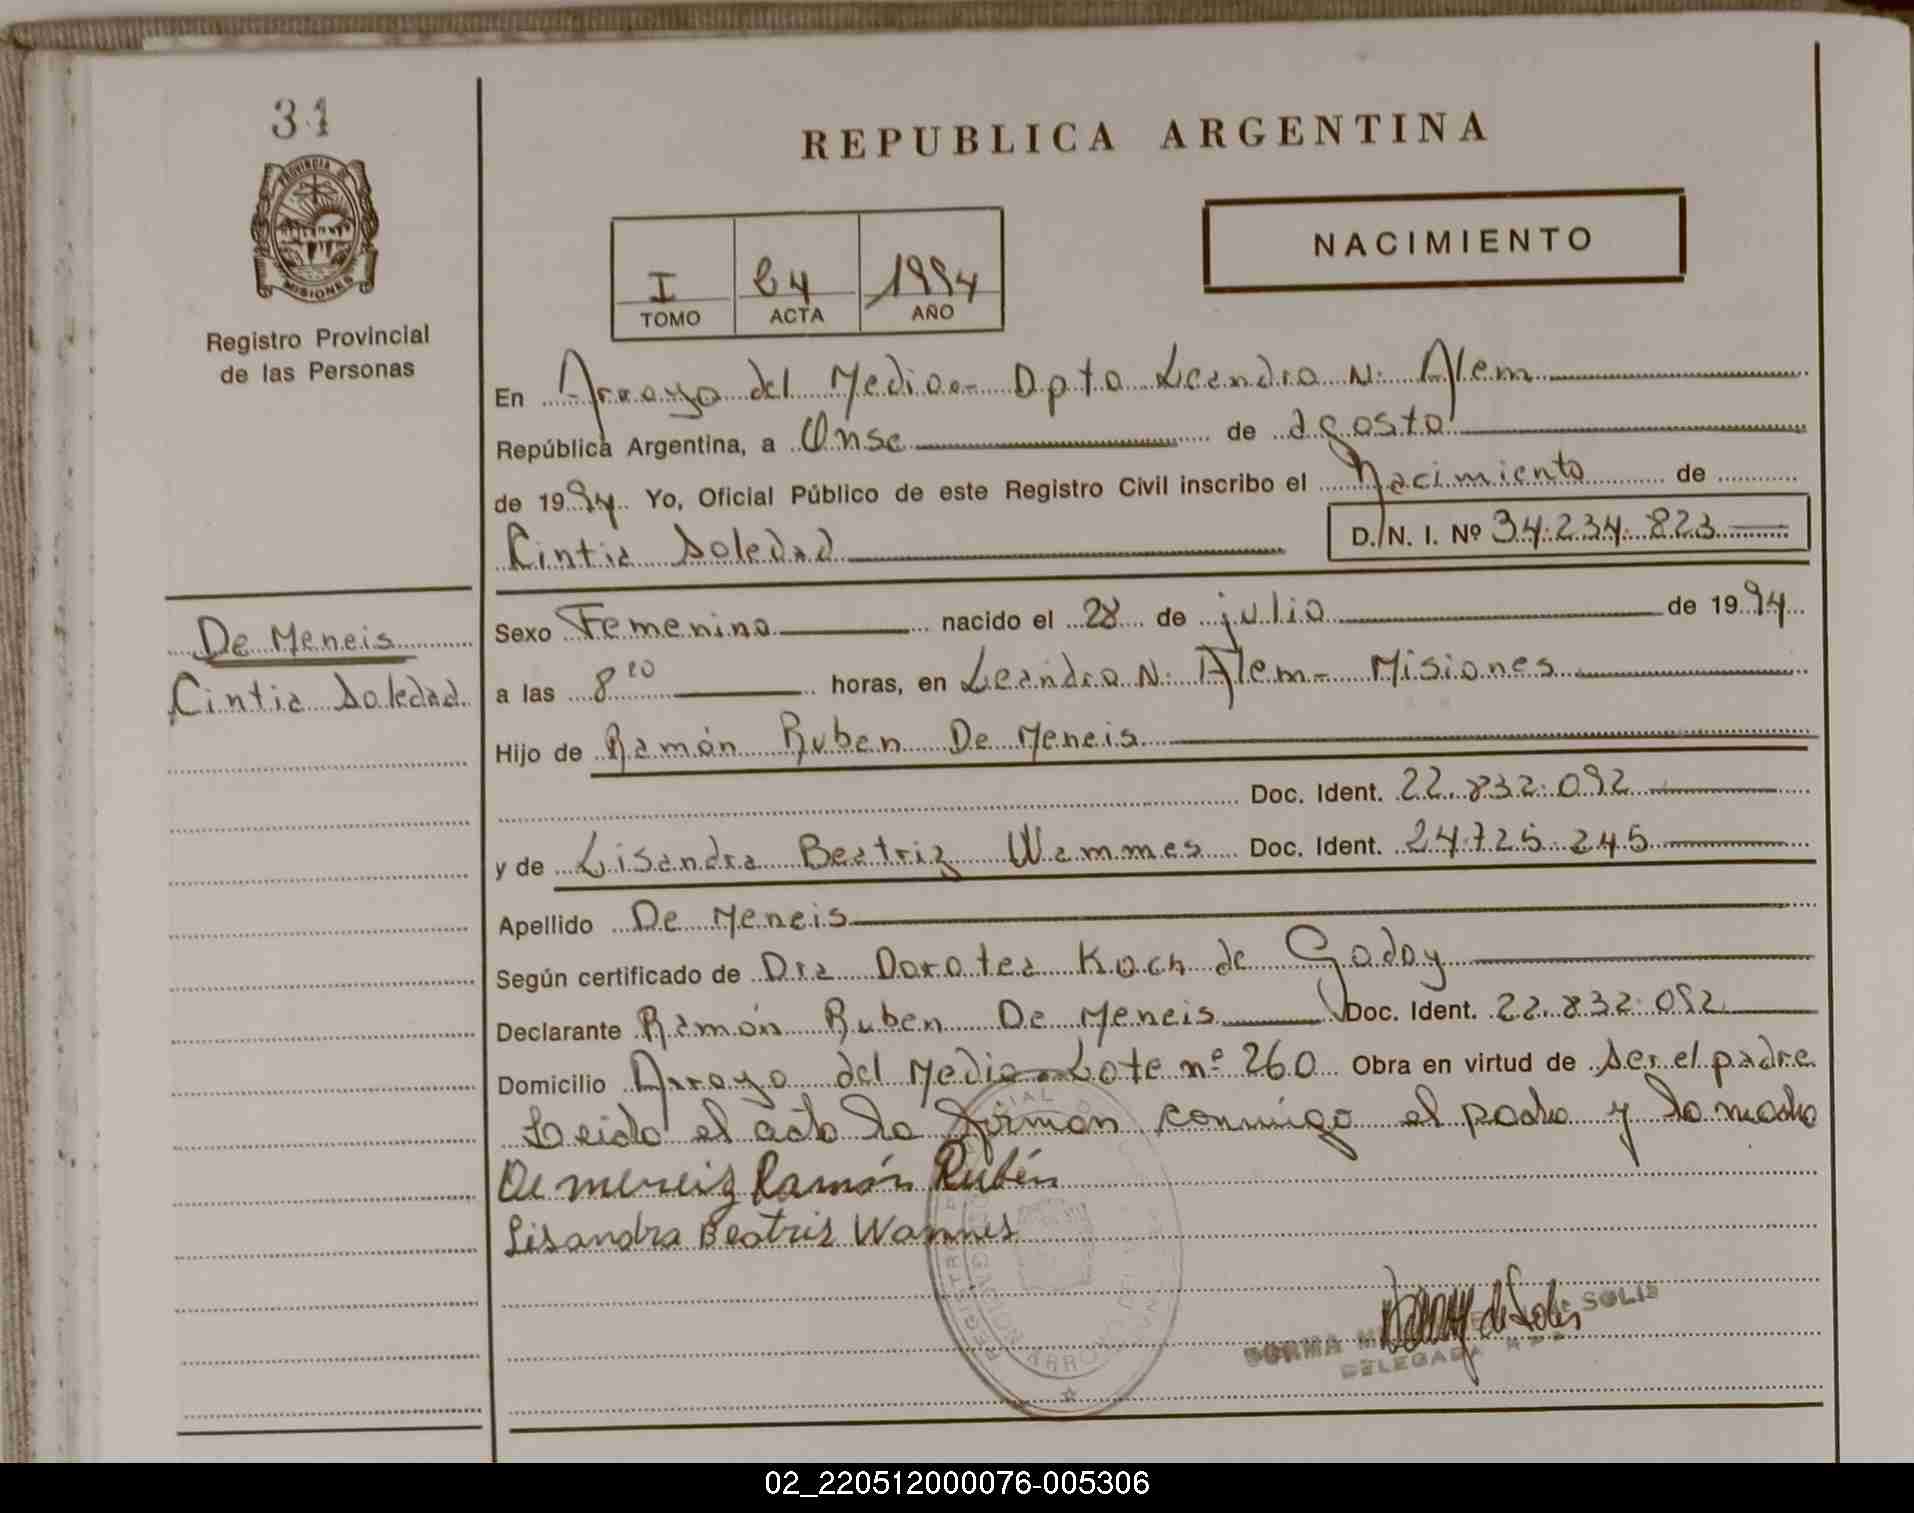 31
PROVINCIA DE
MISIONES
Registro Provincial
de las Personas
De Meneis
Cintia Soledad
REPUBLICA ARGENTINA
I 64 1994
TOMO ACTA AÑO
NACIMIENTO
En Arroyo del Medio.- Dpto Leandro N. Alem
República Argentina, a Onse de agosto
de 1994. Yo, Oficial Público de este Registro Civil inscribo el Nacimiento de
Cintia Soledad D. N. I. Nº 34.234.823
Sexo Femenino nacido el 28 de julio de 1994
a las 8 20 horas, en Leandro N. Alem - Misiones
Hijo de Ramón Ruben De Meneis
Doc. Ident. 22.832.092
y de Lisandra Beatriz Wammes Doc. Ident. 24.725.245
Apellido De Meneis
Según certificado de Dra Dorotea Koch de Godoy
Declarante Ramón Ruben De Meneis Doc. Ident. 22.832.092
Domicilio Arroyo del Medio - Lote nº 260 Obra en virtud de ser el padre
Leido el acto la firman conmigo el padre y la madre
De meneiz Ramón Rubén
Lisandra Beatriz Wammes
NORMA SOLIS
DELEGADA
02_220512000076-005306